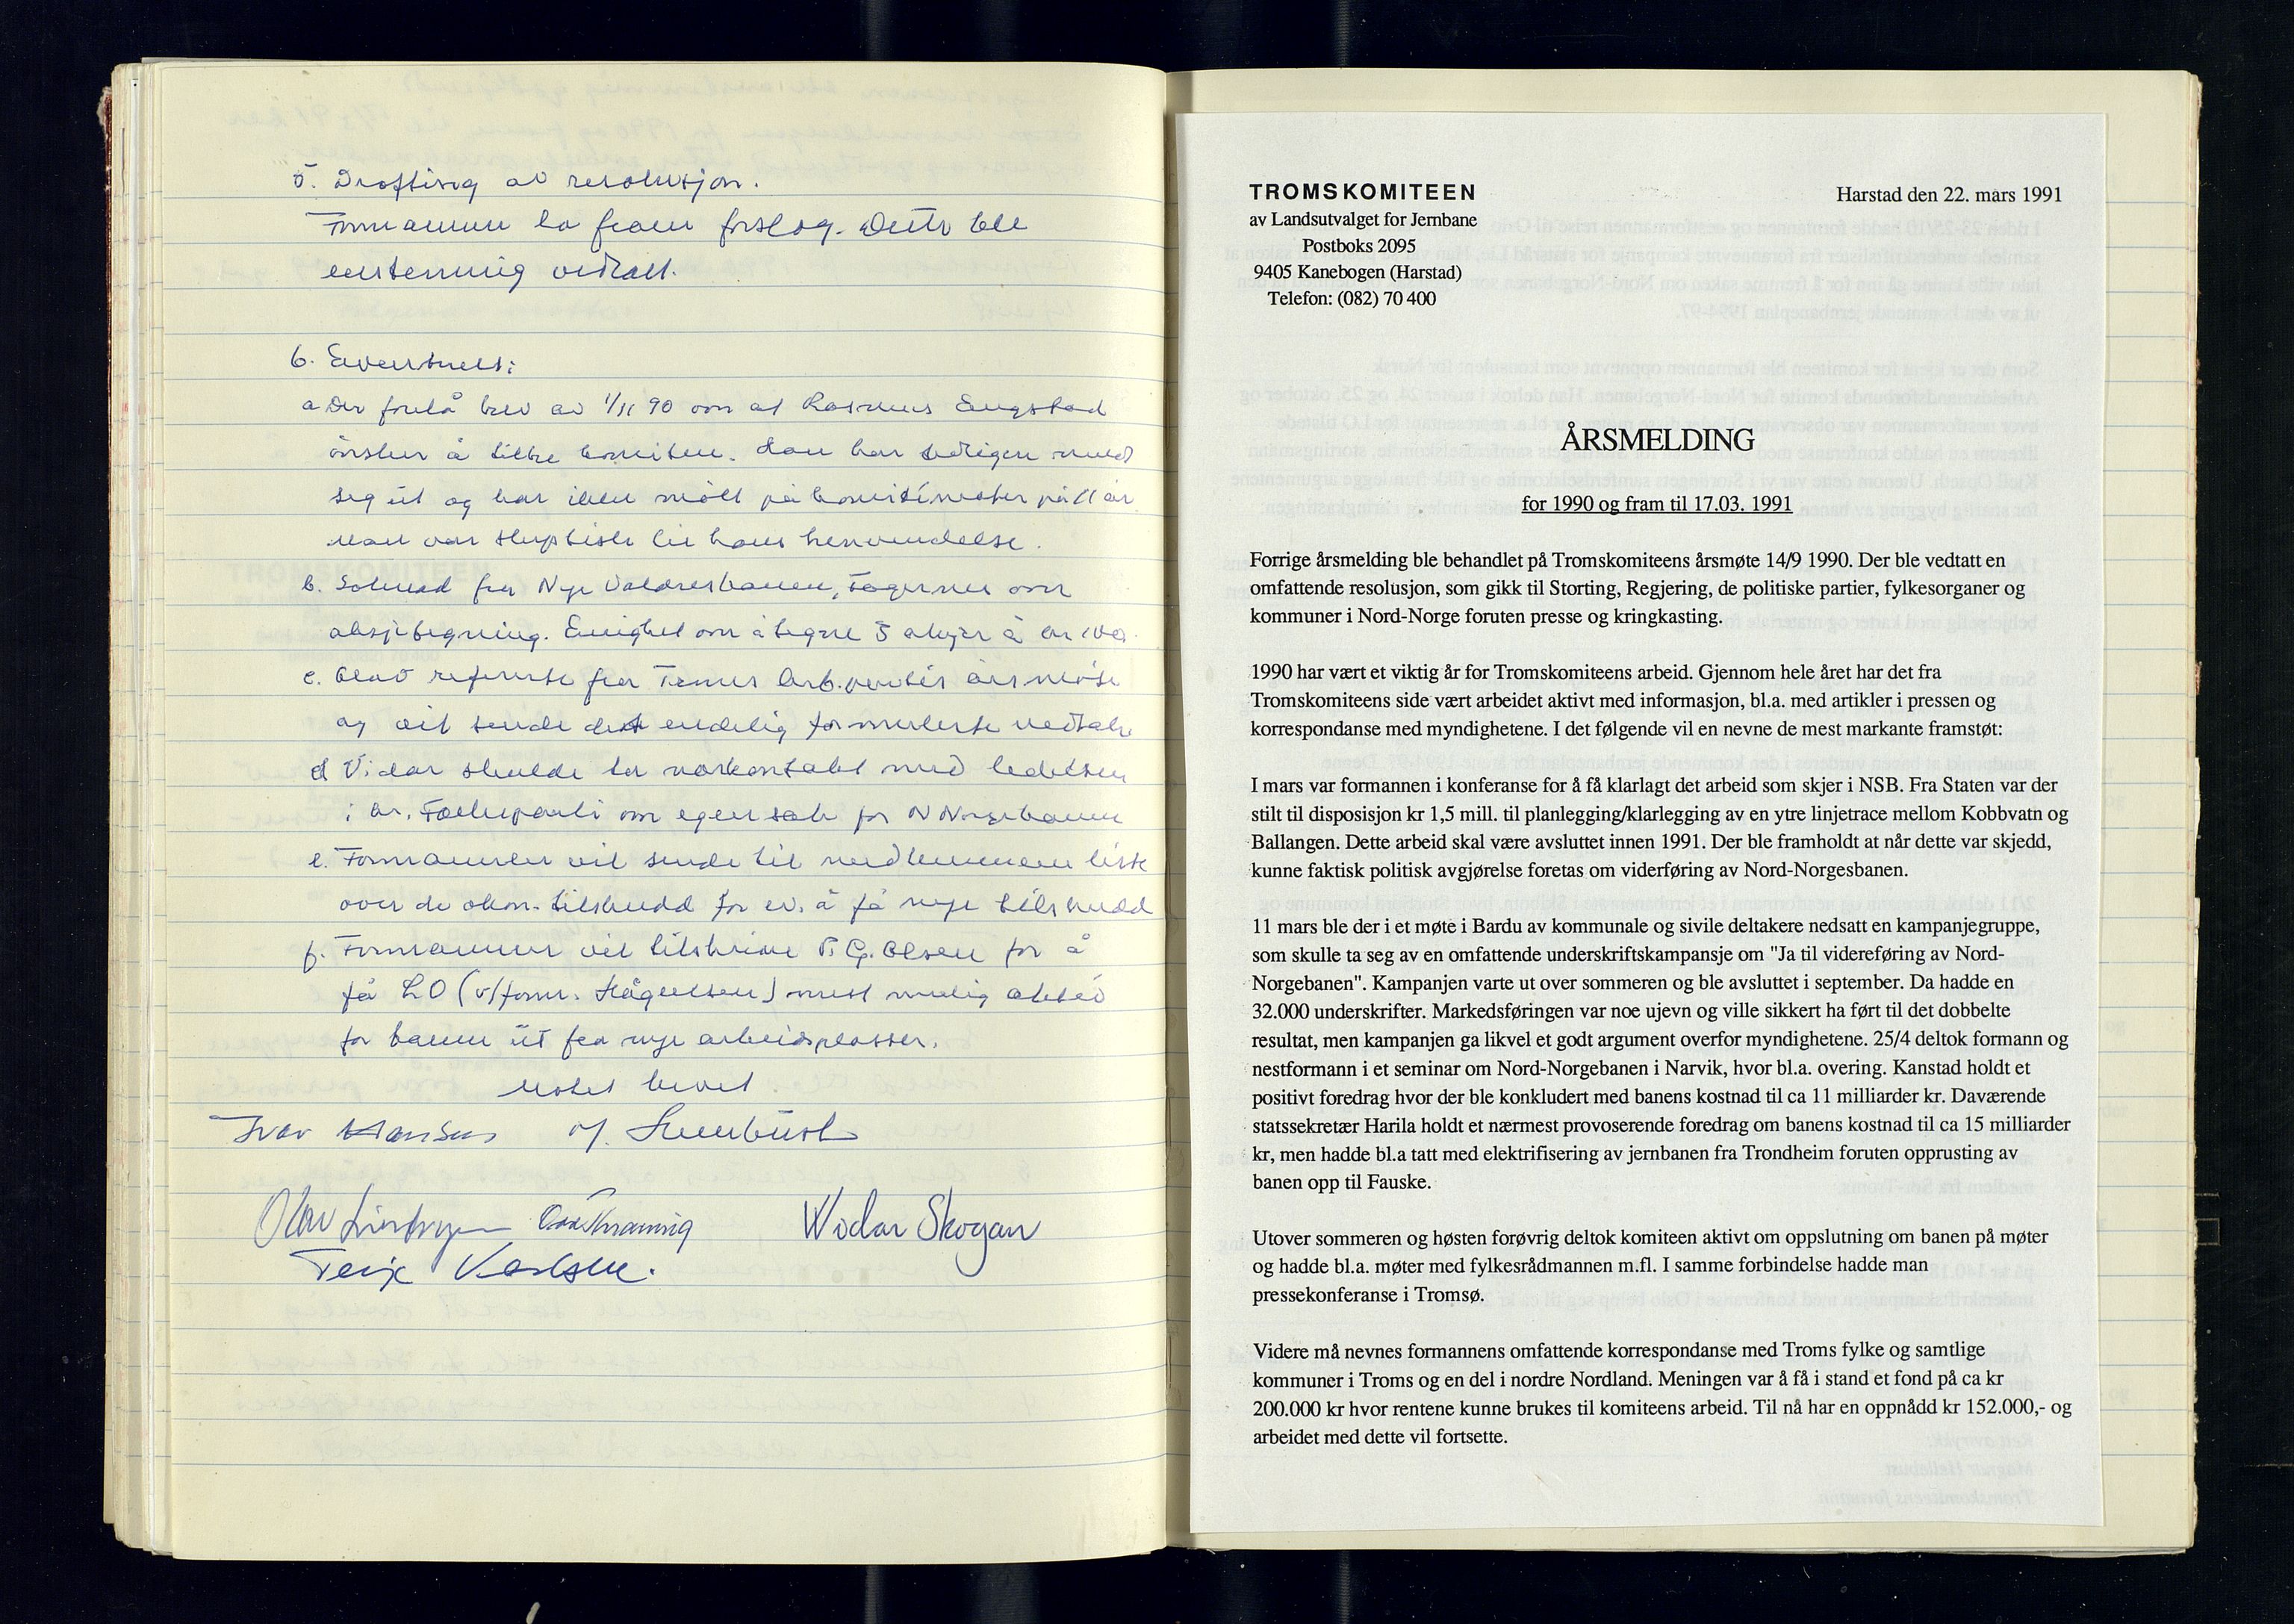 5. Drøfting av resolusjon.
Formannen la fram forslag. Dette ble
enstemmig vedtatt.
6. Eventuelt:
a Der forelå brev av 1/11 90 om at Rasmus Engstad
ønsker å tiltre komiteen. Han har tidligere meldt
seg ut og har ikke møtt på komitémøter på 11 år.
Man var skeptisk til hans henvendelse.
b. Søknad fra Nye Valdresbanen, Fagernes om
aksjetegning. Enighet om å tegne 5 aksjer à kr 100.
c. Olav refererte fra Troms Arb.partis årsmøte
og vil sende det endelig formulerte vedtak
d Vidar skulle ta nærkontakt med ledelsen
i Kr. Folkeparti om egen sak for N Norgebanen
e. Formannen vil sende til medlemmene liste
over de økon. tilskudd for ev. å få nye tilskudd
f. Formannen vil tilskrive P.G. Olsen for å
få LO (v/form. Hågensen) mest mulig aktiv
for banen ut fra nye arbeidsplasser.
Møtet hevet.
Ivar Hansen M. Hellebust
Olav Widar Skogan
Terje Karlsen.
TROMSKOMITEEN
Harstad den 22. mars 1991
av Landsutvalget for Jernbane
Postboks 2095
9405 Kanebogen (Harstad)
Telefon: (082) 70 400
ÅRSMELDING
for 1990 og fram til 17.03. 1991
Forrige årsmelding ble behandlet på Tromskomiteens årsmøte 14/9 1990. Der ble vedtatt en
omfattende resolusjon, som gikk til Storting, Regjering, de politiske partier, fylkesorganer og
kommuner i Nord-Norge foruten presse og kringkasting.
1990 har vært et viktig år for Tromskomiteens arbeid. Gjennom hele året har det fra
Tromskomiteens side vært arbeidet aktivt med informasjon, bl.a. med artikler i pressen og
korrespondanse med myndighetene. I det følgende vil en nevne de mest markante framstøt:
I mars var formannen i konferanse for å få klarlagt det arbeid som skjer i NSB. Fra Staten var der
stilt til disposisjon kr 1,5 mill. til planlegging/klarlegging av en ytre linjetrace mellom Kobbvatn og
Ballangen. Dette arbeid skal være avsluttet innen 1991. Der ble framholdt at når dette var skjedd,
kunne faktisk politisk avgjørelse foretas om viderføring av Nord-Norgesbanen.
11 mars ble der i et møte i Bardu av kommunale og sivile deltakere nedsatt en kampanjegruppe,
som skulle ta seg av en omfattende underskriftskampansje om "Ja til videreføring av Nord-
Norgebanen". Kampanjen varte ut over sommeren og ble avsluttet i september. Da hadde en
32.000 underskrifter. Markedsføringen var noe ujevn og ville sikkert ha ført til det dobbelte
resultat, men kampanjen ga likvel et godt argument overfor myndighetene. 25/4 deltok formann og
nestformann i et seminar om Nord-Norgebanen i Narvik, hvor bl.a. overing. Kanstad holdt et
positivt foredrag hvor der ble konkludert med banens kostnad til ca 11 milliarder kr. Daværende
statssekretær Harila holdt et nærmest provoserende foredrag om banens kostnad til ca 15 milliarder
kr, men hadde bl.a tatt med elektrifisering av jernbanen fra Trondheim foruten opprusting av
banen opp til Fauske.
Utover sommeren og høsten forøvrig deltok komiteen aktivt om oppslutning om banen på møter
og hadde bl.a. møter med fylkesrådmannen m.fl. I samme forbindelse hadde man
pressekonferanse i Tromsø.
Videre må nevnes formannens omfattende korrespondanse med Troms fylke og samtlige
kommuner i Troms og en del i nordre Nordland. Meningen var å få i stand et fond på ca kr
200.000 kr hvor rentene kunne brukes til komiteens arbeid. Til nå har en oppnådd kr 152.000,- og
arbeidet med dette vil fortsette.